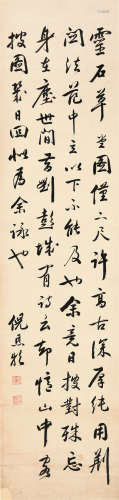 靈石草堂圖僅二尺許高古深厚純用荆
關法范中立以下不能及也余竟日披對殊忘
身在塵世間昔劉彭城有詩云却憶山中客
披圖裝日回性為余詠也
倪思齡